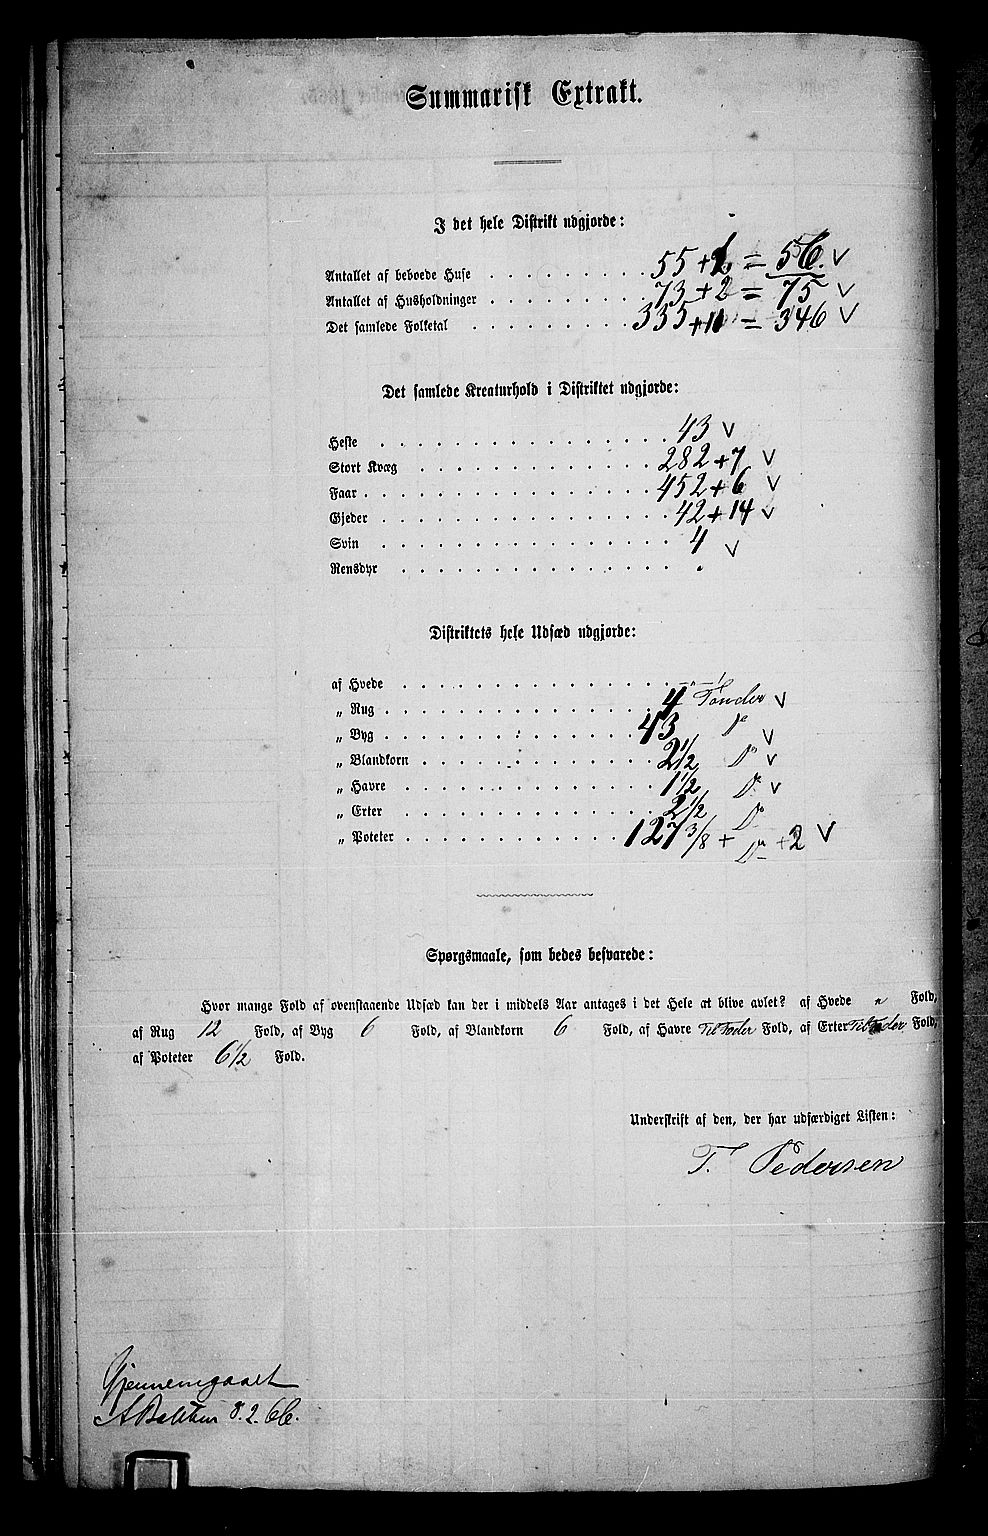 Summarisk Extrakt.
I det hele Distrikt udgjorde:
Antallet af beboede Huse 55 + 1 = 56. V
Antallet af Husholdninger 73 + 2 = 75 V
Det samlede Folketal 335 + 11 = 346 V
Det samlede Kreaturhold i Distriktet udgjorde:
Heste 43 V
Stort Kvæg 282 + 7 V
Faar 452 + 6 V
Gjeder 42 + 14 V
Svin 4 V
Rensdyr
Distriktets hele Udsæd udgjorde:
af Hvede "
„ Rug 4 Tønder V
„ Byg 43 Do V
„ Blandkorn 2 1/2 Do V
„ Havre 1 1/2 Do V
„ Erter 2 1/2 Do
„ Poteter 127 3/8 + Do + 2 V
Spørgsmaale, som bedes besvarede:
Hvor mange Fold af ovenstaaende Udsæd kan der i middels Aar antages i det Hele at blive avlet? af Hvede " Fold,
af Rug 12 Fold, af Byg 6 Fold, af Blandkorn 6 Fold, af Havre til Foder Fold, af Erter til Foder Fold,
af Poteter 6 1/2 Fold.
Underskrift af den, der har udfærdiget Listen:
T. Pedersen
Gjennemgaaet
8.2.66.